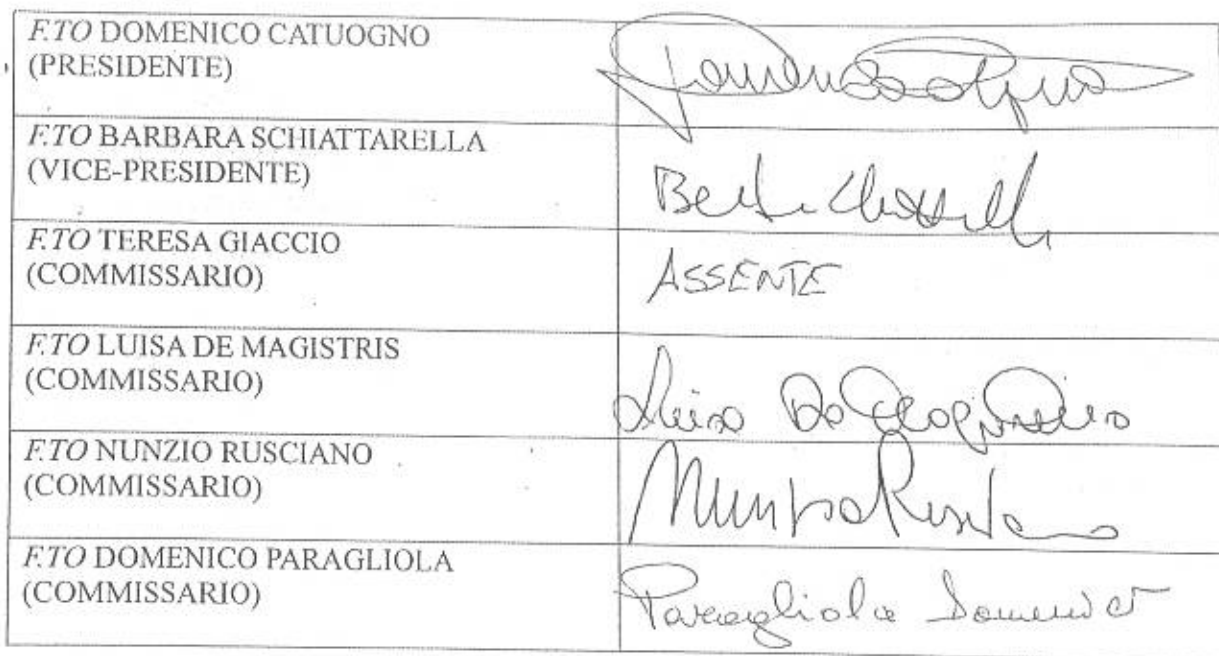 F.TO DOMENICO CATUOGNO
(PRESIDENTE)
F.TO BARBARA SCHIATTARELLA
(VICE-PRESIDENTE)
F.TO TERESA GIACCIO
(COMMISSARIO)
ASSENTE
F.TO LUISA DE MAGISTRIS
(COMMISSARIO)
Luisa De Magistris
F.TO NUNZIO RUSCIANO
(COMMISSARIO)
Nunzio Rusciano
F.TO DOMENICO PARAGLIOLA
(COMMISSARIO)
Paragliola Domenico